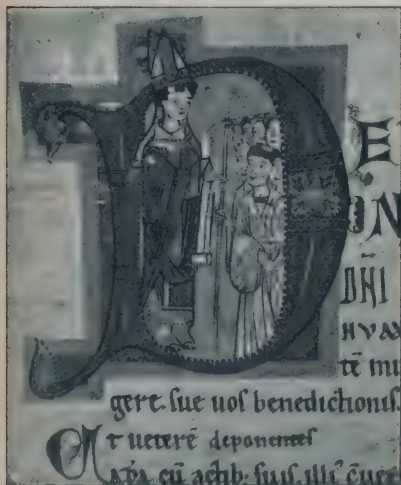 D E
ON
DN̄I
NVA
tē mu
gert. sue uos benedictionis.
Et ueterē deponentes
cū actib: suis. illi